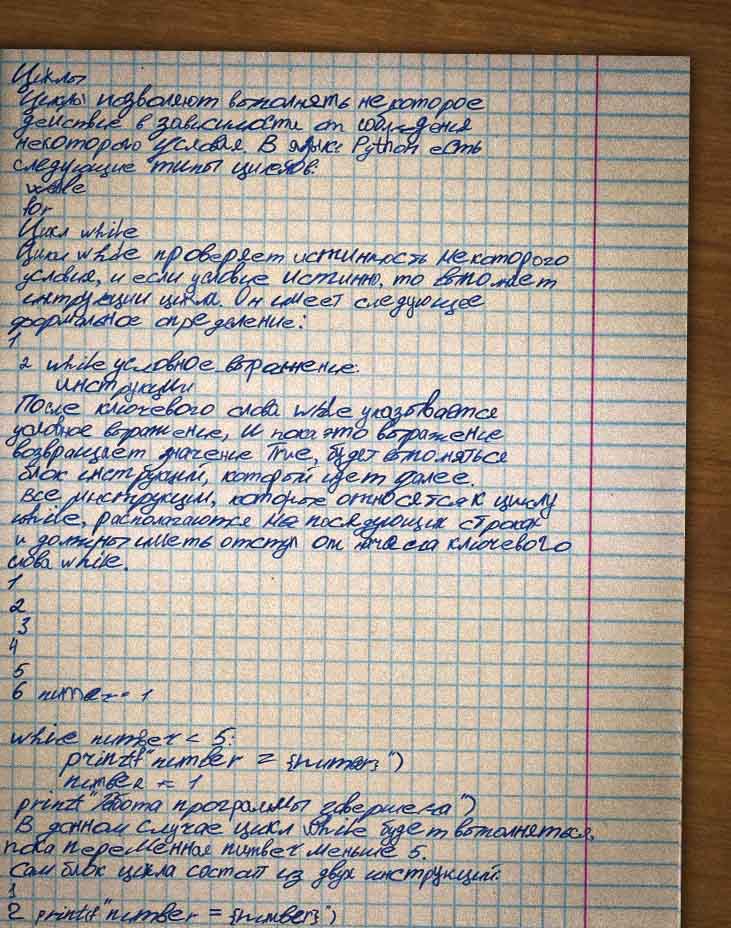 Циклы
Циклы позволяют выполнять некоторое
действие в зависимости от соблюдения
некоторого условия В языке Python есть
следующие типы циклов:
while
for
Цикл while
Цикл while проверяет истинность некоторого
условия, и если условие истинно, то выполняет
инструкции цикла. Он имеет следующее
формальное определение:
1
2 while условное_выражение:
инструкции
После ключевого слова while указывается
условное выражение, и пока это выражение
возвращает значение True, будет выполняться
блок инструкций, который идет далее.
Все инструкции, которые относятся к циклу
while, располагаются на последующих строках
и должны иметь отступ от начала ключевого
слова while.
1
2
3
4
5
6 number = 1
while number < 5:
print(f"number = {number}")
number += 1
print("Работа программы завершена")
В данном случае цикл while будет выполняться,
пока переменная number меньше 5.
Сам блок цикла состоит из двух инструкций:
1
2 print(f"number = {number}")